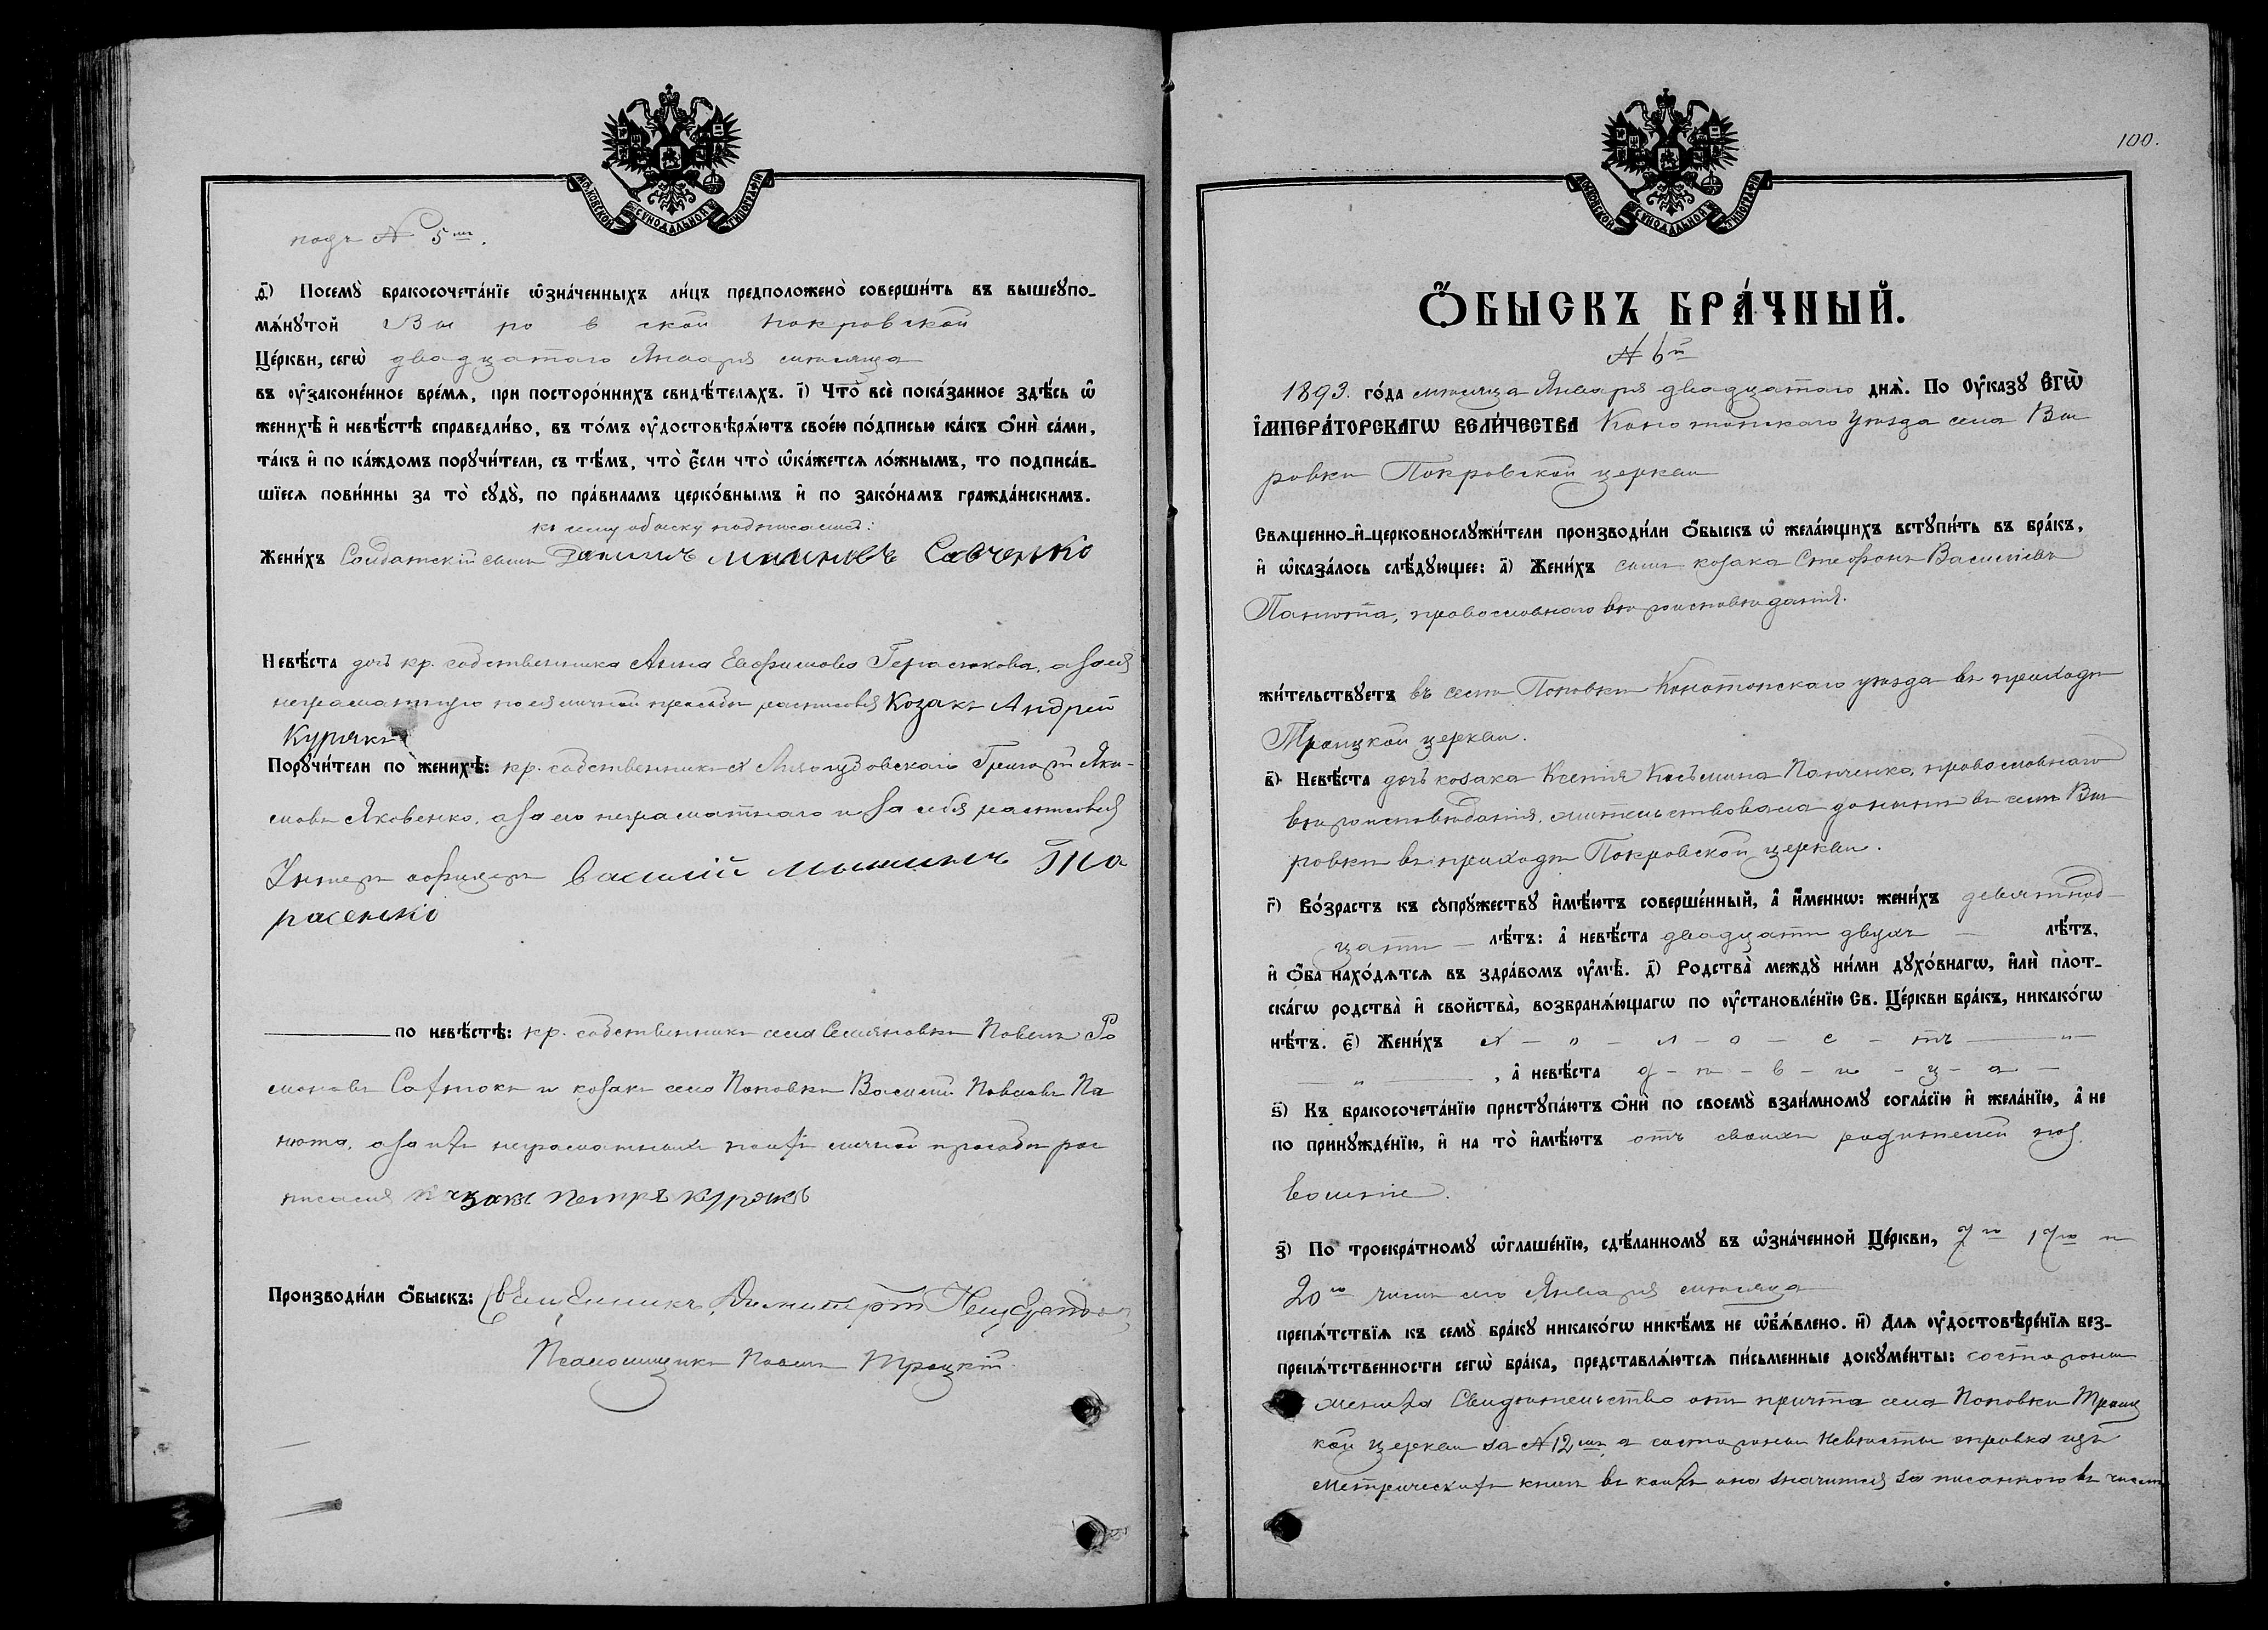 МОСКОВСКОЙ СѴНОДАЛЬНОЙ ТИПОГРАФІИ
подъ № 5мъ.
ѳ҃) Посемꙋ̀ бракосочета́нїе ѡ҆зна́ченныхъ ли́цъ предположено̀ соверши́ть въ вышеꙋпо-
мѧ́нꙋтой Вы ро в ской Покровской
Це́ркви, сегѡ̀ двадцатаго Января мѣсяца
въ ᲂу҆законе́нное вре́мѧ, при посторо́ннихъ свидѣ́телѧхъ. і҃) Что̀ всѐ пока́занное здѣ́сь ѡ҆
женихѣ̀ и҆ невѣ́стѣ справедли́во, въ то́мъ ᲂу҆достовѣрѧ́ютъ свое́ю по́дписью ка́къ ѻ҆нѝ са́ми,
та́къ и҆ по ка́ждомъ порꙋчи́тели, съ тѣ́мъ, что̀ є҆́сли что̀ ѡ҆ка́жетсѧ ло́жнымъ, то подписа́в-
шїесѧ пови́нны за то̀ сꙋдꙋ̀, по пра́виламъ церко́внымъ и҆ по зако́намъ гражда́нскимъ.
къ сему обыску подписались:
Жени́хъ Солдатскій сынъ Данило Миновъ Савченко
Невѣ́ста дочь кр. собственника Анна Евфимова Герасюкова, а за нея
неграмотную по ея личной просьбѣ расписался Козакъ Андрей
Курякъ
Порꙋчи́тели по женихѣ̀: кр. собственникъ Григорій Яки-
мовъ Яковенко, а за его неграмотнаго и за себя расписался
Унтеръ офицеръ Василий Тка
расенко
по невѣ́стѣ: кр. собственникъ села Семяновки Павелъ Ро
мановъ и козакъ села Поповки Василій Павловъ Па
нюта, а за ихъ неграмотныхъ по ихъ личной просьбѣ рос
писался козакъ Петръ Курякъ
Производи́ли ѻ҆́быскъ: Священникъ Димитрій
Псаломщикъ Павелъ Троцкій
100.
МОСКОВСКОЙ СѴНОДАЛЬНОЙ ТИПОГРАФІИ
Ѻ҆́БЫСКЪ БРА́ЧНЫЙ.
№ 6й
1893. го́да мѣсяца Января двадцатаго днѧ̀. По Оу҆казꙋ Є҆гѡ̀
І҆МПЕРА́ТОРСКАГѠ ВЕЛИ́ЧЕСТВА Конотопскаго уѣзда села Вы
ровки Покровской церкви
Свѧщенно-и҆-церковнослꙋжи́тели производи́ли ѻ҆́быскъ ѡ҆ жела́ющихъ встꙋпи́ть въ бра́къ,
и҆ ѡ҆каза́лось слѣ́дꙋющее: а҃) Жени́хъ сынъ козака Стефанъ Василіевъ
Панюта, православнаго вѣроисповѣданія.
жи́тельствꙋетъ въ селѣ Поповки Конотопскаго уѣзда въ приходѣ
Троицкой церкви.
в҃) Невѣ́ста дочь козака Ксенія Косьмина Панченко, православнаго
вѣроисповѣданія, жительствовала донынѣ въ селѣ Вы
ровки въ приходѣ Покровской церкви.
г҃) Во́зрастъ къ сꙋпрꙋ́жествꙋ и҆мѣ́ютъ соверше́нный, а҆ и҆́меннѡ: жени́хъ девятнад-
цати – лѣ́тъ: а҆ невѣ́ста двадцати двухъ – лѣ́тъ,
и҆ ѻ҆́ба нахо́дѧтсѧ въ здра́вомъ ᲂу҆мѣ̀. д҃) Родства̀ междꙋ̀ ни́ми дꙋхо́внагѡ, и҆лѝ пло́т-
ска́гѡ родства̀ и҆ свойства̀, возбранѧ́ющагѡ по ᲂу҆становле́нїю Св. Це́ркви бра́къ, никако́гѡ
нѣ́тъ. є҃) Жени́хъ х – о – л – о – с – тъ – „ –
„ , а҆ невѣ́ста д – ѣ – в – и – ц – а –
ѕ҃) Къ бракосочета́нїю пристꙋпа́ютъ ѻ҆нѝ по своемꙋ̀ взаи́мномꙋ согла́сїю и҆ жела́нїю, а҆ не
по принꙋжде́нїю, и҆ на то̀ и҆мѣ́ютъ отъ своихъ родителей поз
воленіе.
з҃) По троекра́тномꙋ ѡ҆глаше́нїю, сдѣ́ланномꙋ въ ѡ҆зна́ченной Це́ркви, 7го 17го и
20го чиселъ сего Января мѣсяца
препѧ́тствїѧ къ семꙋ̀ бра́кꙋ никако́гѡ никѣ́мъ не ѡ҆б̾ѧ́влено. и҃) Длѧ ᲂу҆достовѣре́нїѧ без-
препѧ́тственности сегѡ̀ бра́ка, представлѧ́ютсѧ пи́сьменные докꙋме́нты: со стороны
жениха Свидѣтельство отъ причта села Поповки Троиц
кой церкви за № 12мъ а со стороны невѣсты справка изъ
Метрическихъ книгъ въ коихъ она значится записанною въ числѣ